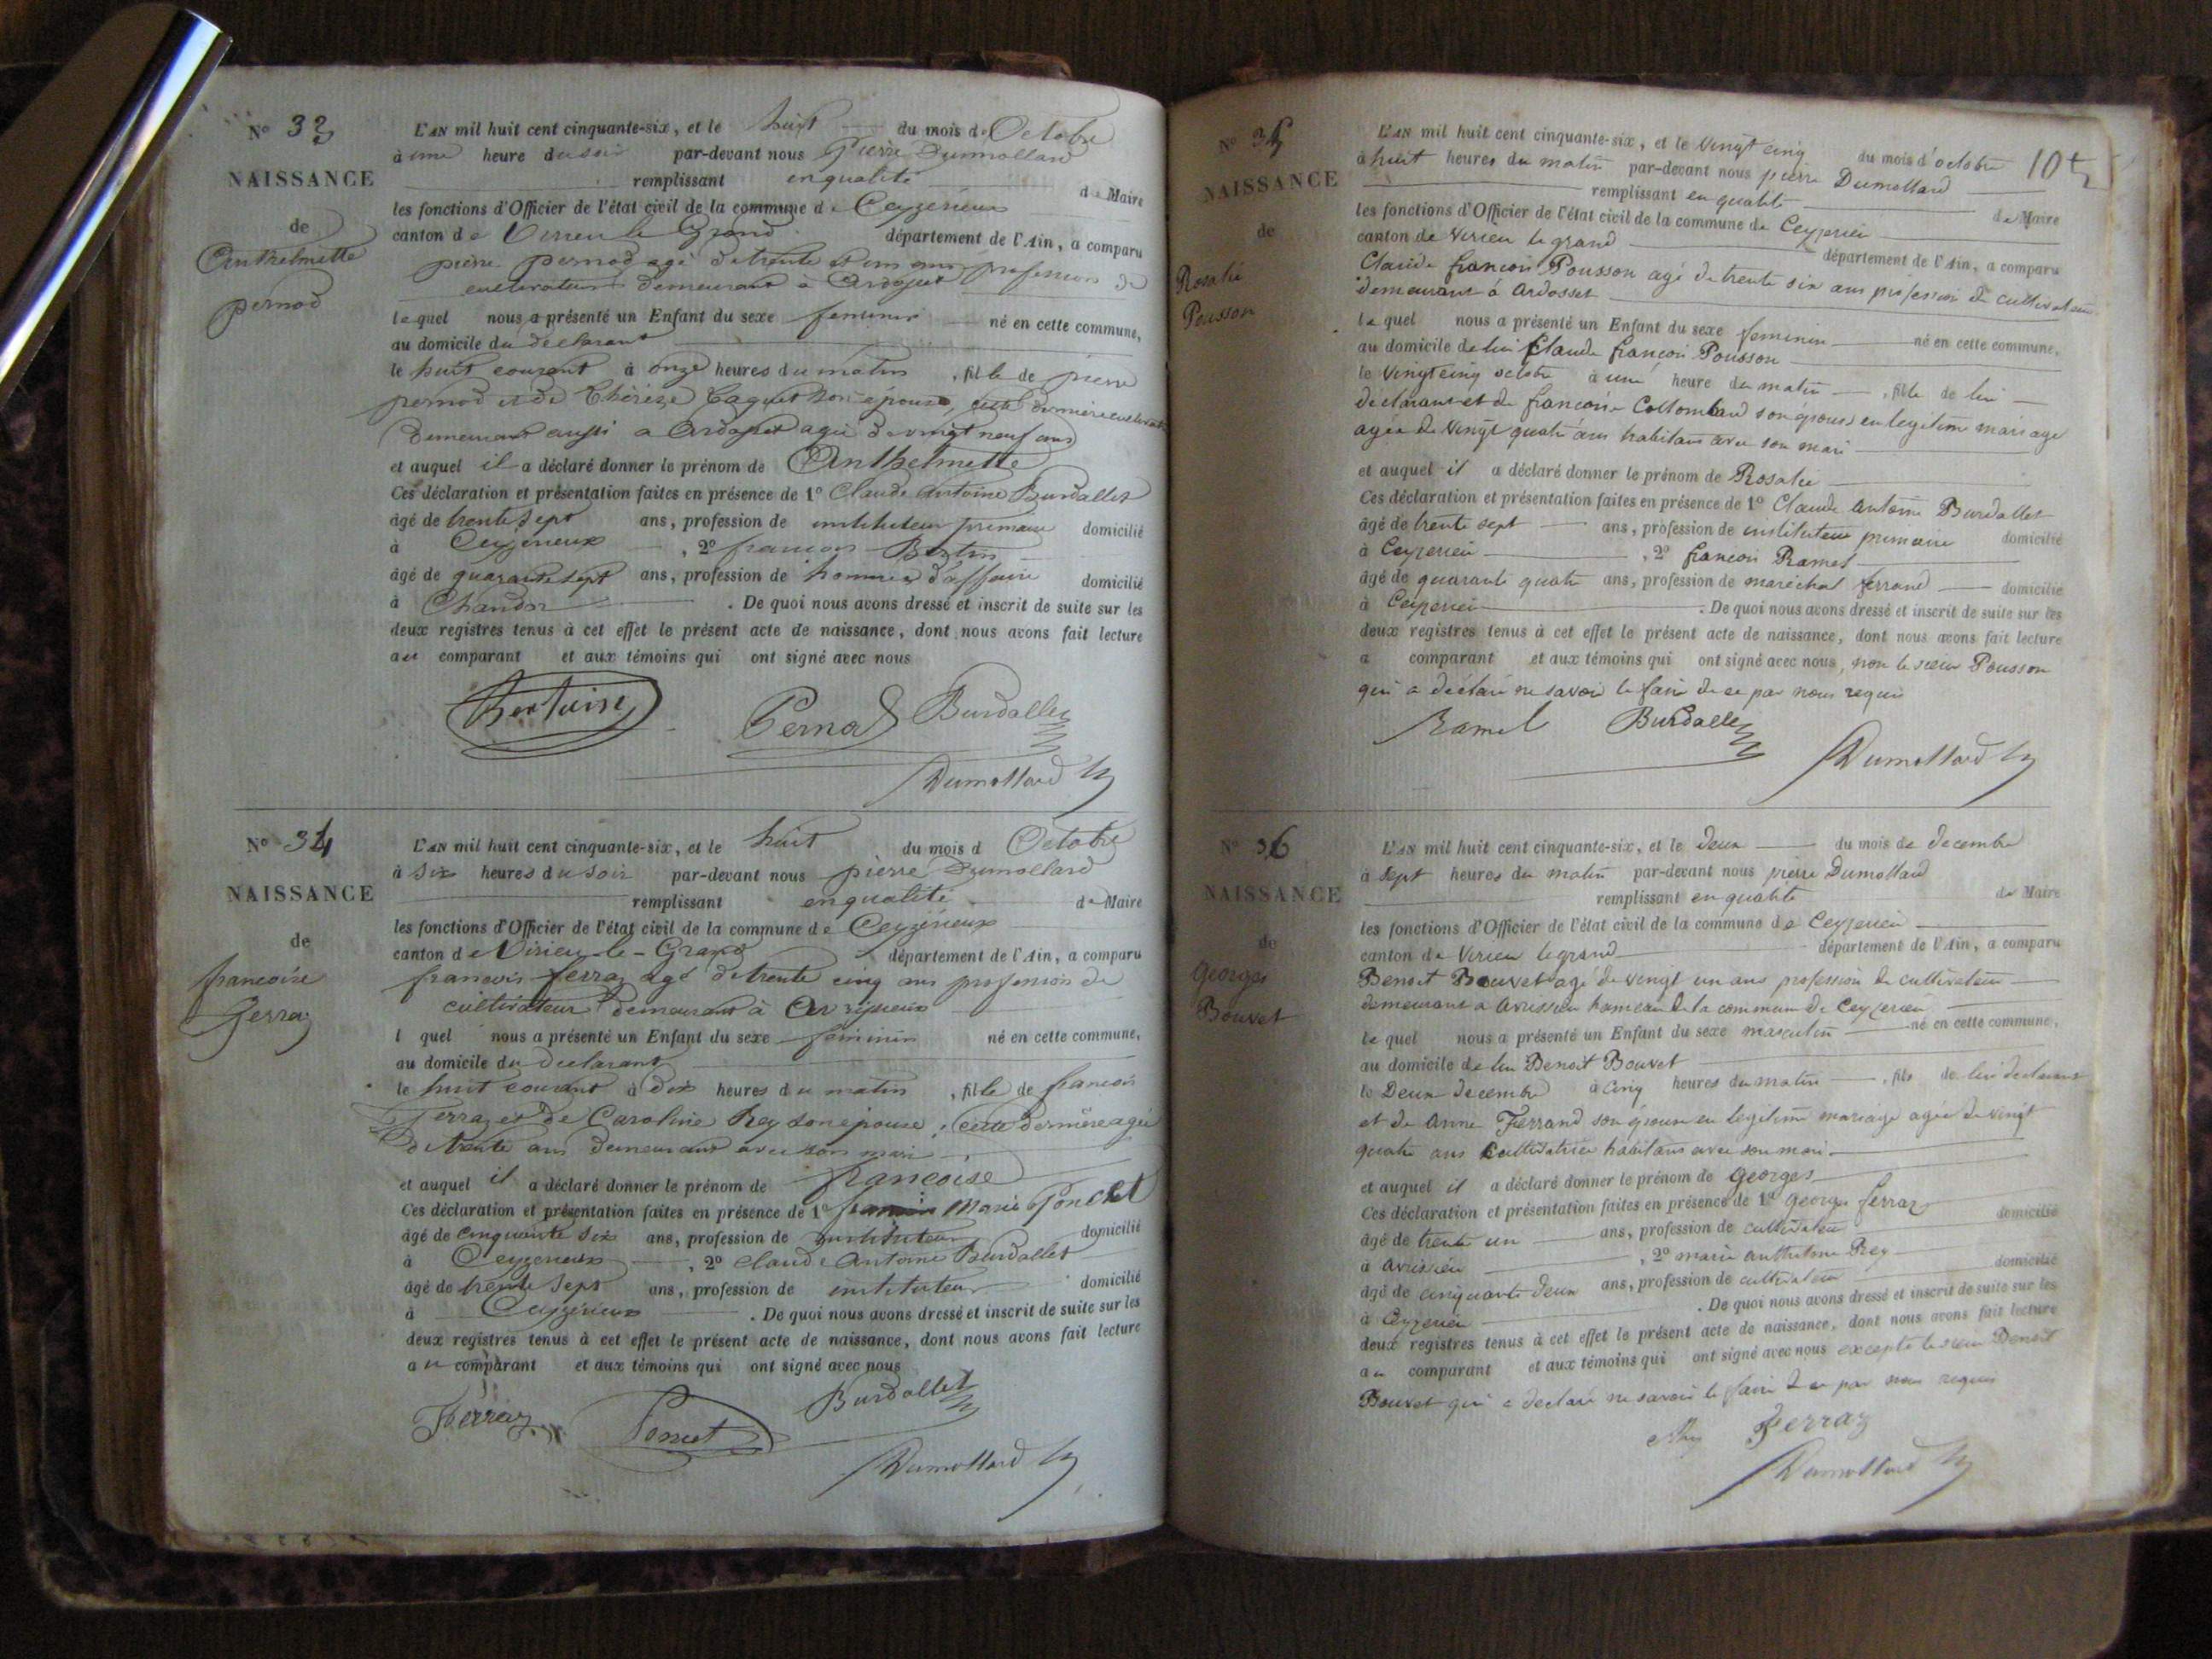 N° 33
NAISSANCE
de
Anthelmette
pernod
L'AN mil huit cent cinquante-six, et le huit du mois d'Octobre
à une heure du soir par-devant nous Pierre Dumollard
remplissant en qualité de Maire
les fonctions d'Officier de l'état civil de la commune de Ceyzérieux
canton de Virieu le Grand département de l'Ain, a comparu
pierre pernod agé de trente et un ans profession de
cultivateur demeurant à Ardosset
lequel nous a présenté un Enfant du sexe feminin né en cette commune,
au domicile du declarant
le huit courant à onze heures du matin, fille de pierre
pernod et de Thérèze Caquet son épouse, cette dernière
demeurant aussi a Ardosset agée de vingt neuf ans
et auquel il a déclaré donner le prénom de Anthelmette
Ces déclaration et présentation faites en présence de 1° Claude Antoine Burdallet
âgé de trente sept ans, profession de instituteur primaire domicilié
à Ceyzerieux, 2° francois
âgé de quarante sept ans, profession de hommes d'affaire domicilié
à . De quoi nous avons dressé et inscrit de suite sur les
deux registres tenus à cet effet le présent acte de naissance, dont nous avons fait lecture
au comparant et aux témoins qui ont signé avec nous
Pernod Burdallet
Dumollard
N° 34
NAISSANCE
de
francoise
ferraz
L'AN mil huit cent cinquante-six, et le huit du mois d Octobre
à six heures du soir par-devant nous pierre Dumollard
remplissant en qualité de Maire
les fonctions d'Officier de l'état civil de la commune de Ceyzérieux
canton de Virieu-le-Grand département de l'Ain, a comparu
francois ferraz agé de trente cinq ans profession de
cultivateur demeurant à
l quel nous a présenté un Enfant du sexe feminin né en cette commune,
au domicile du declarant
le huit courant à dix heures du matin, fille de francois
Ferraz et de Caroline Rey son epouse, cette dernière agée
de trente ans demeurant avec son mari
et auquel il a déclaré donner le prénom de francoise
Ces déclaration et présentation faites en présence de 1° Marie Poncet
âgé de cinquante six ans, profession de instituteur domicilié
à Ceyzerieux, 2° Claude Antoine Burdallet
âgé de trente sept ans, profession de instituteur domicilié
à Ceyzérieux. De quoi nous avons dressé et inscrit de suite sur les
deux registres tenus à cet effet le présent acte de naissance, dont nous avons fait lecture
au comparant et aux témoins qui ont signé avec nous
Ferraz Poncet Burdallet
Dumollard
N° 35
NAISSANCE
de
Rosalie
Pousson
L'AN mil huit cent cinquante-six, et le Vingt cinq du mois d'octobre
à huit heures du matin par-devant nous pierre Dumollard
remplissant en qualité de Maire
les fonctions d'Officier de l'état civil de la commune de Ceyzerieu
canton de Virieu le grand département de l'Ain, a comparu
Claude francois Pousson agé de trente six ans profession de cultivateur
demeurant à Ardosset
lequel nous a présenté un Enfant du sexe feminin né en cette commune,
au domicile de lui Claude francois Pousson
le Vingt cinq octobre à une heure du matin, fille de lui
declarant et de francoise Collomband son epouse en legitime mariage
agée de Vingt quatre ans habitant avec son mari
et auquel il a déclaré donner le prénom de Rosalie
Ces déclaration et présentation faites en présence de 1° Claude Antoine Burdallet
âgé de trente sept ans, profession de instituteur primaire domicilié
à Ceyzerieu, 2° francois Ramel
âgé de quarante quatre ans, profession de maréchal ferrand domicilié
à Ceyzerieu. De quoi nous avons dressé et inscrit de suite sur les
deux registres tenus à cet effet le présent acte de naissance, dont nous avons fait lecture
a comparant et aux témoins qui ont signé avec nous, non le sieur Pousson
qui a déclaré ne savoir le faire de ce par nous requis
Ramel Burdallet
Dumollard
N° 36
NAISSANCE
de
Georges
Bouvet
L'AN mil huit cent cinquante-six, et le deux du mois de decembre
à sept heures du matin par-devant nous pierre Dumollard
remplissant en qualité de Maire
les fonctions d'Officier de l'état civil de la commune de Ceyzerieu
canton de Virieu legrand département de l'Ain, a comparu
Benoit Bouvet agé de vingt un ans profession de cultivateur
demeurant a Avrissieu hameau de la commune de Ceyzerieu
lequel nous a présenté un Enfant du sexe masculin né en cette commune,
au domicile de lui Benoit Bouvet
le Deux decembre à cinq heures du matin, fils de lui declarant
et de Anne Ferrand son épouse en legitime mariage agée de vingt
quatre ans Cultivatrice habitant avec son mari
et auquel il a déclaré donner le prénom de Georges
Ces déclaration et présentation faites en présence de 1° George ferraz
âgé de trente un ans, profession de cultivateur domicilié
à Avrissieu, 2° marie anthelme Rey
âgé de cinquante deux ans, profession de cultivateur domicilié
à Ceyzerieu. De quoi nous avons dressé et inscrit de suite sur les
deux registres tenus à cet effet le présent acte de naissance, dont nous avons fait lecture
au comparant et aux témoins qui ont signé avec nous excepté le sieur Benoit
Bouvet qui a declaré ne savoir le faire de ce par nous requis
Ferraz
Dumollard